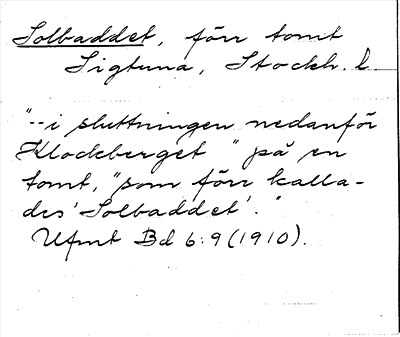 Solbaddet, förr tomt
Sigtuna, Stockh. l.
"-- i sluttningen nedanför
Klockberget" på en
tomt, "som förr kalla-
des 'Solbaddet'."
Ufmt Bd 6:9 (1910).